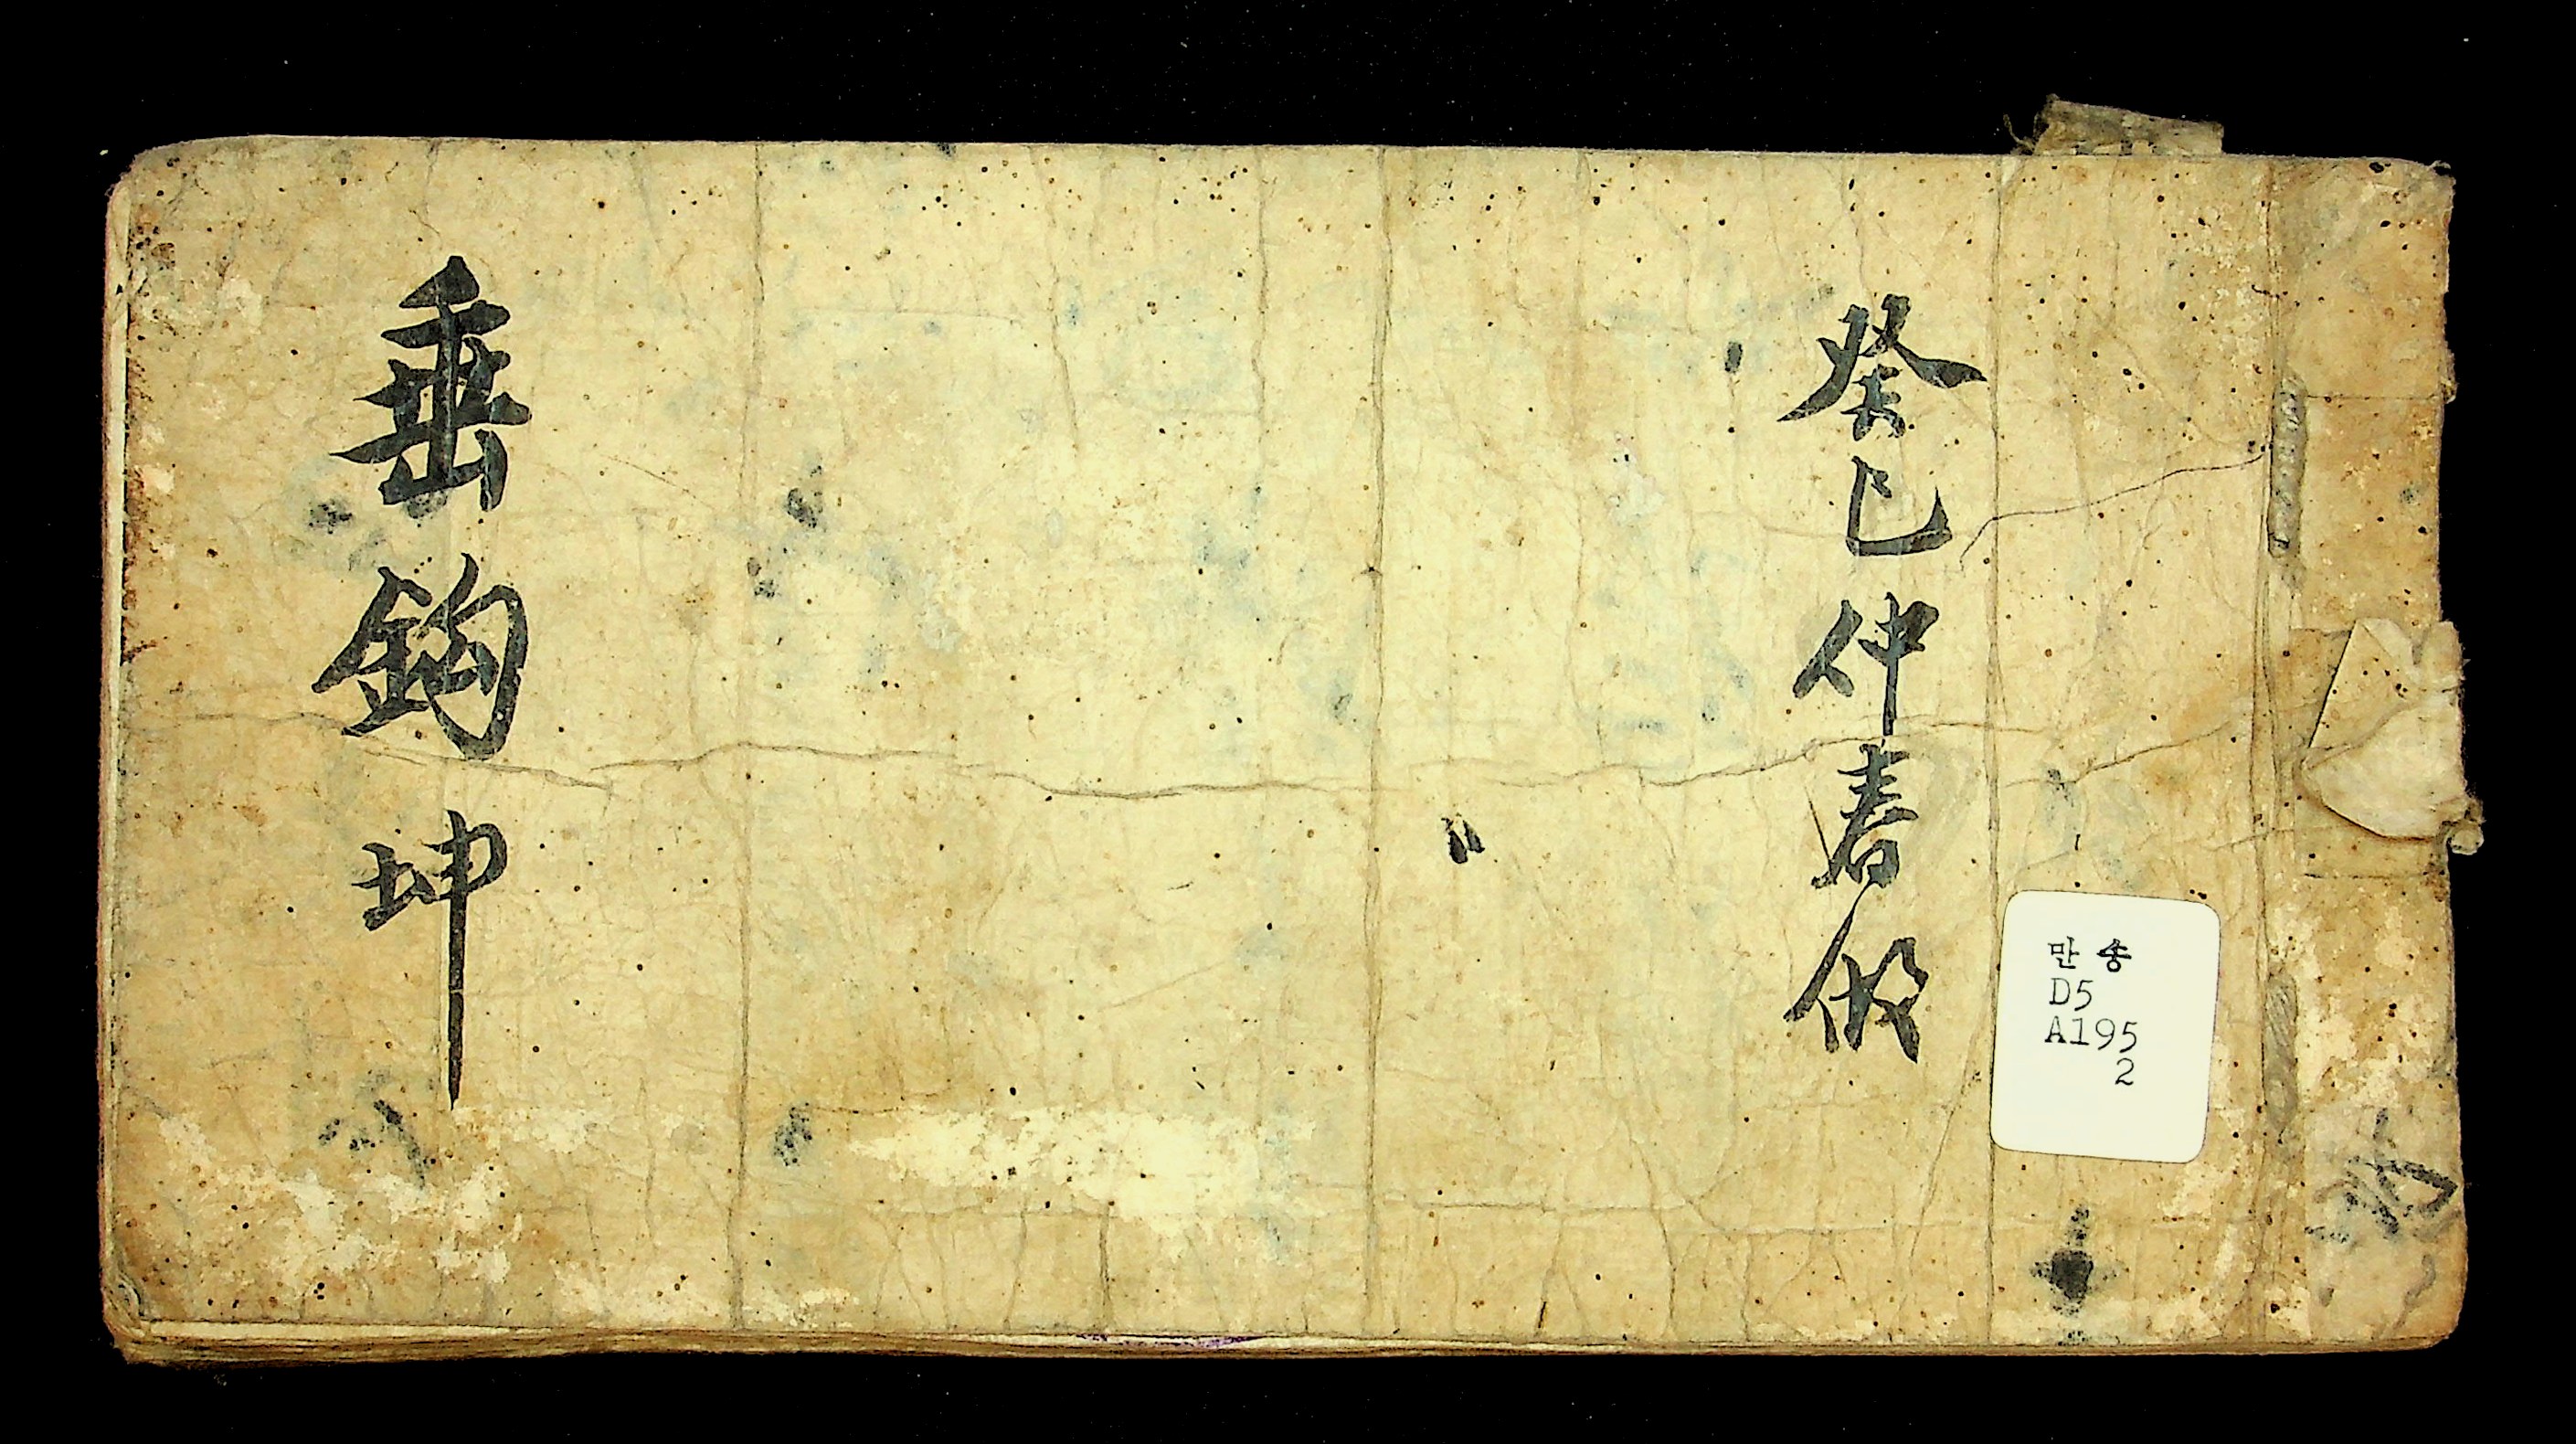 癸巳仲春
垂鈎 坤
만송
D5
A195
2